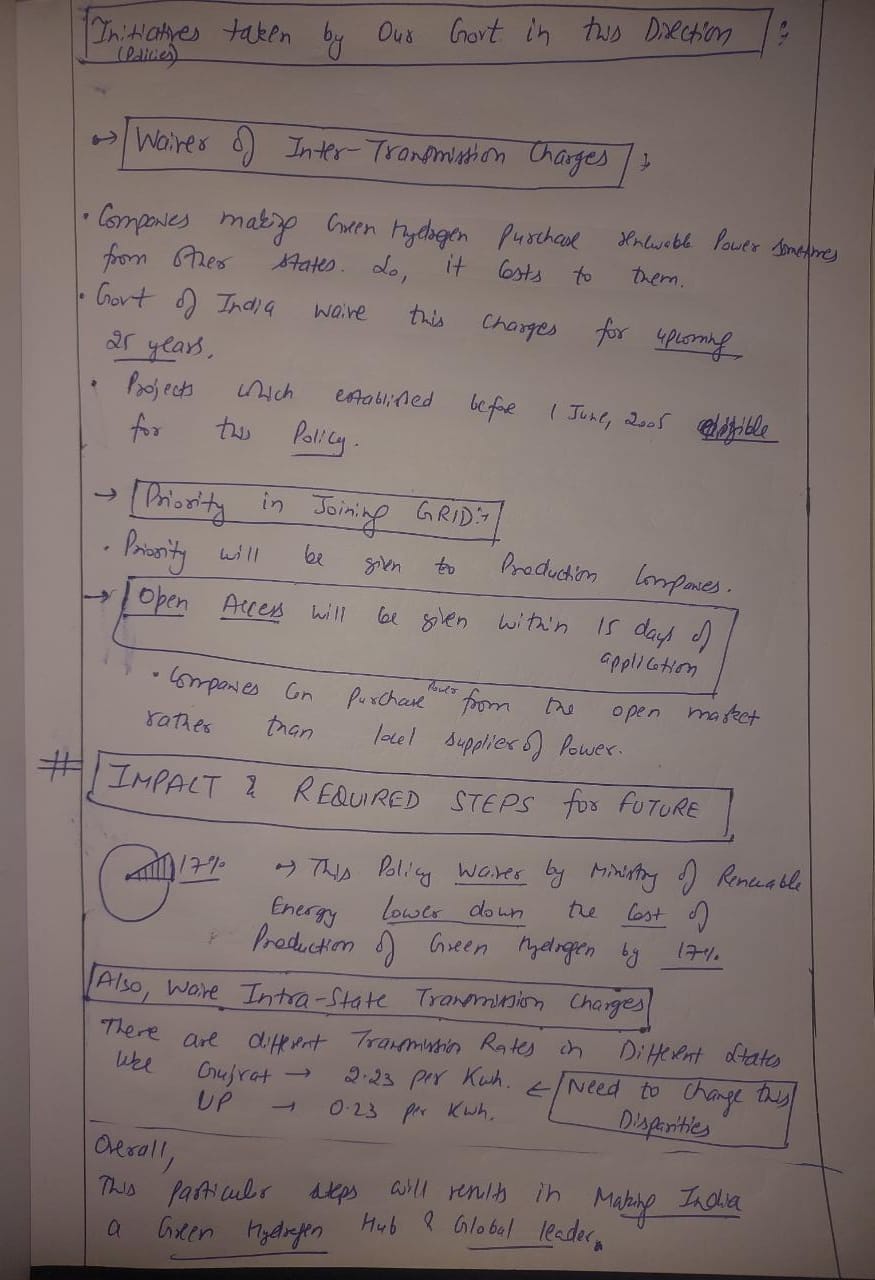 Initiatives taken by Our Govt in this Direction :
(Policies)
→ Waiver of Inter-Transmission Charges :
• Companies making Green Hydrogen Purchase renewable Power sometimes
from other states. So, it Costs to them.
• Govt of India waive this charges for upcoming
25 years.
• Projects which established before 1 June, 2005 eligible
for this Policy.
→ Priority in Joining GRID:-
• Priority will be given to Production Companies.
→ Open Access will be given within 15 days of
application
• Companies Can Purchase Power from the open market
rather than local supplier of Power.
# IMPACT & REQUIRED STEPS for FUTURE
17% → This Policy waiver by Ministry of Renewable
Energy lower down the Cost of
Production of Green Hydrogen by 17%.
Also, Waive Intra-State Transmission Charges
There are different Transmission Rates in Different States
like Gujrat → 2.23 per Kwh. ← Need to change this
UP → 0.23 per Kwh. Disparities
Overall,
This Particular steps will results in Making India
a Green Hydrogen Hub & Global leader.